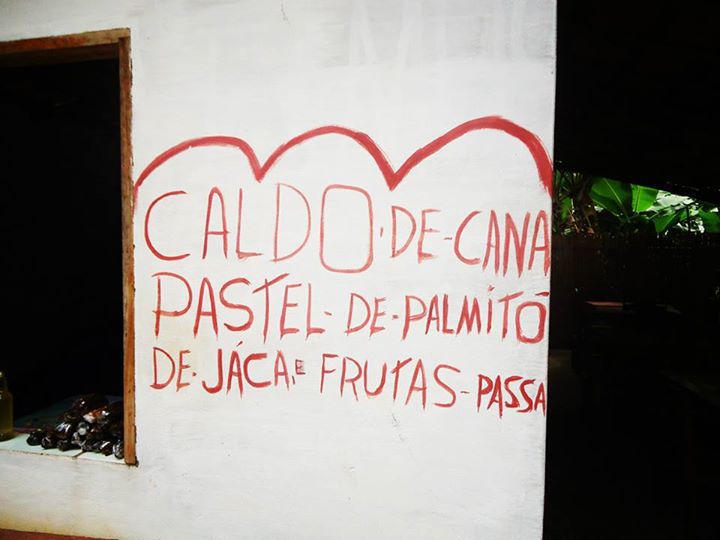 CALDO·DE-CANA
PASTEL-DE-PALMITÓ
DE·JÁCA, E FRUTAS-PASSA